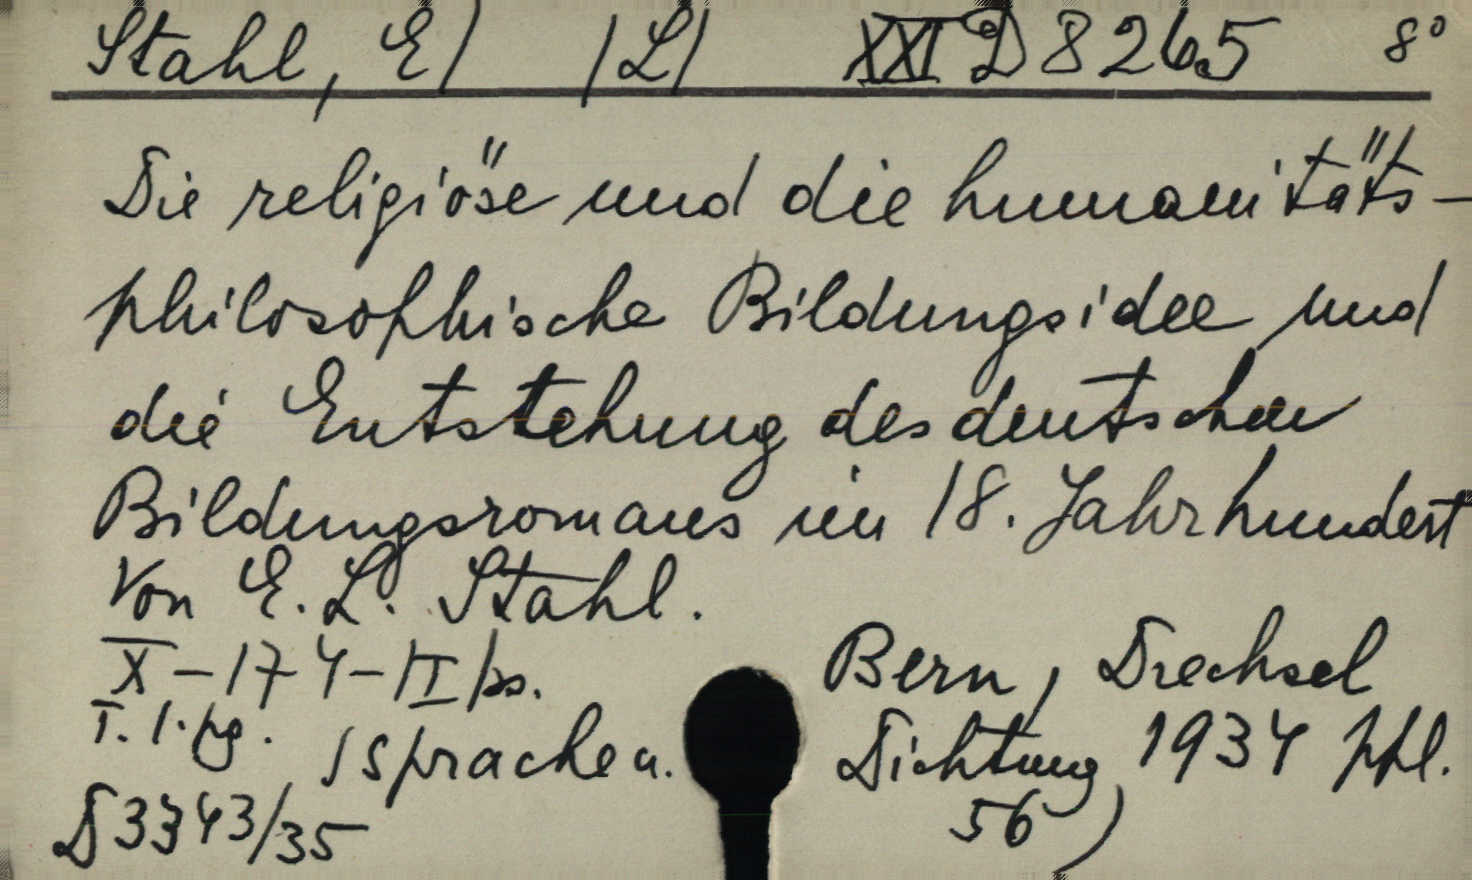 Stahl, E/ /L/ XXI D 8265 8°
Die religiöse und die humanitäts-
philosophische Bildungsidee und
die Entstehung des deutschen
Bildungsromans im 18. Jahrhundert
Von E. L. Stahl.
X-174-/I/ps. Bern, Drechsel
T. 1. pg. /Sprache u. Dichtung 1934 ppl.
D 3343/35 56)